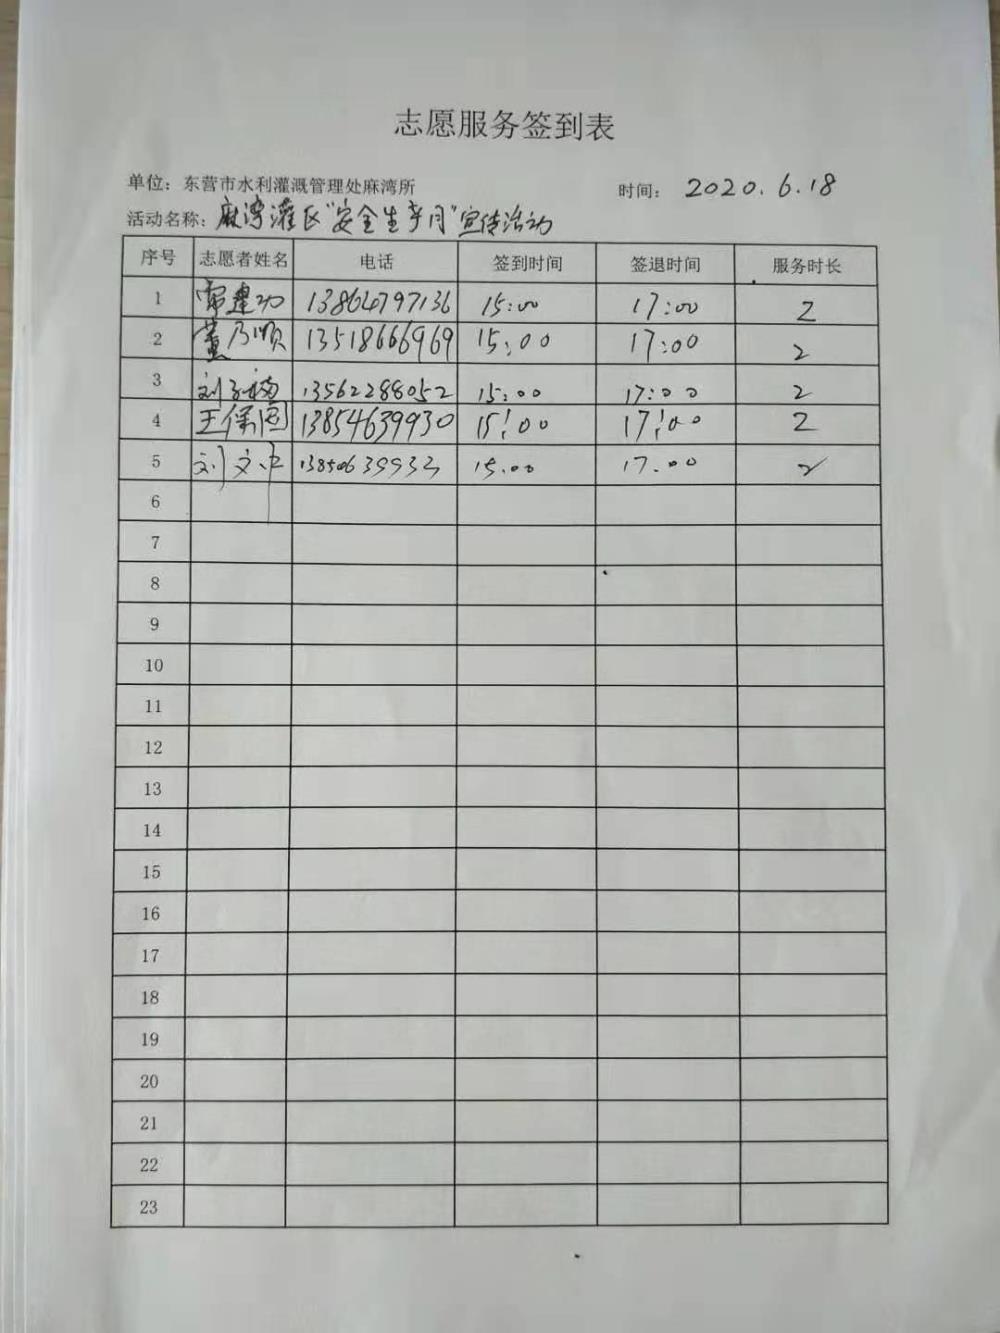 志愿服务签到表
单位：东营市水利灌溉管理处麻湾所 时间： 2020.6.18
活动名称：麻湾灌区"安全生产月"宣传活动
序号 志愿者姓名 电话 签到时间 签退时间 服务时长
1 常建功 13864797136 15:00 17:00 2
2 董乃顺 13518666969 15:00 17:00 2
3 刘 13562288052 15:00 17:00 2
4 王保国 13854639930 15:00 17:00 2
5 刘文中 15:00 17:00 2
6
7
8
9
10
11
12
13
14
15
16
17
18
19
20
21
22
23